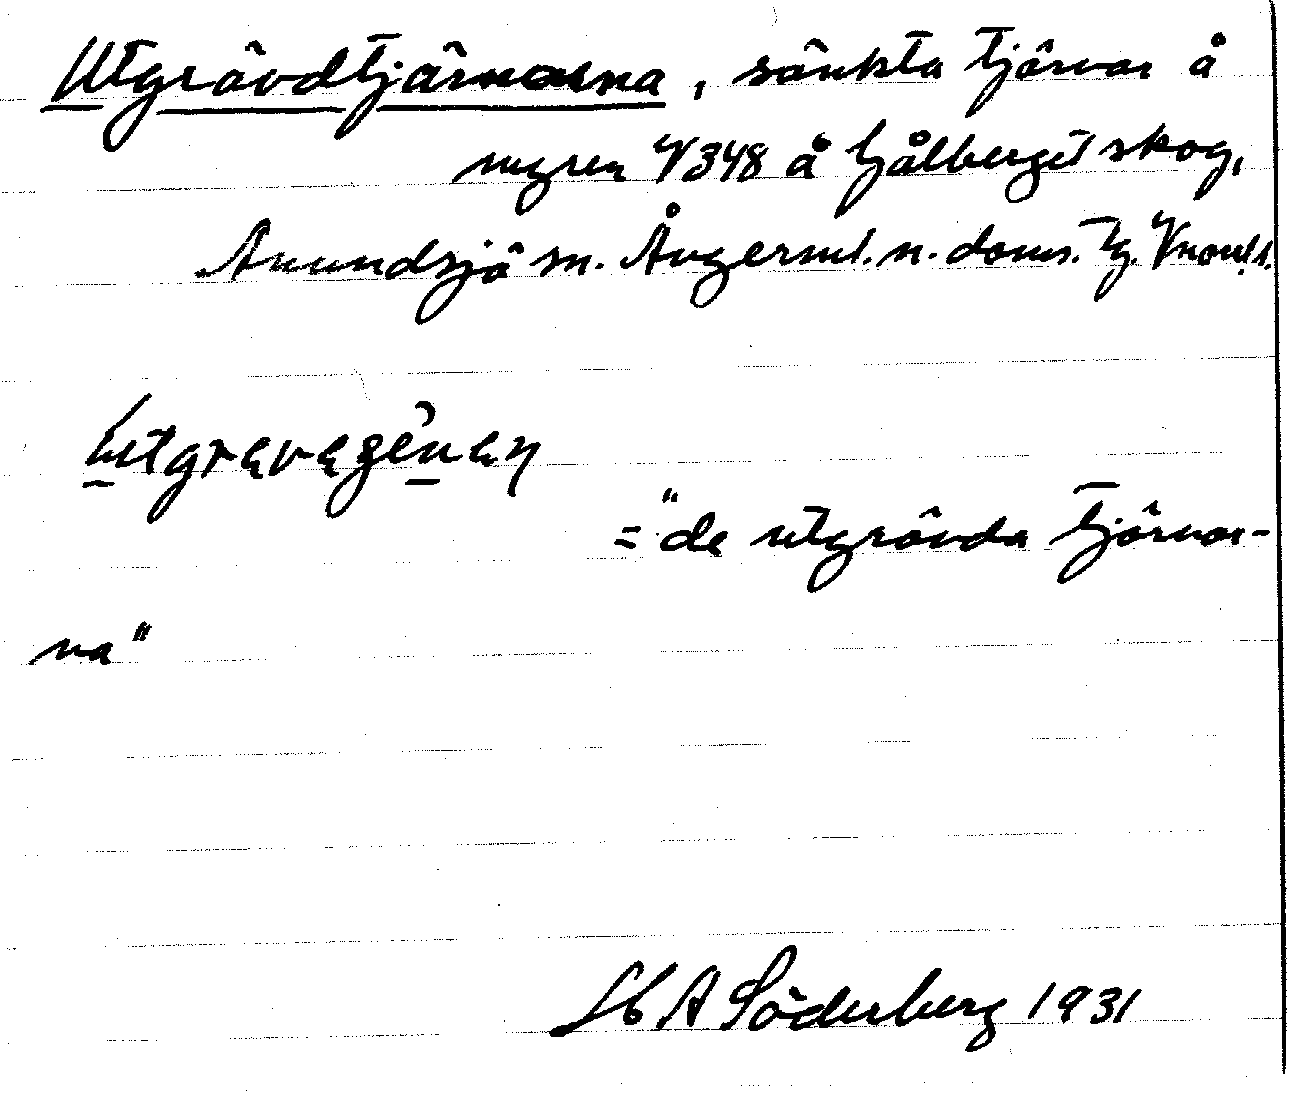 Utgrävdtjärnarna, sänkta tjärnar å
myren V348 å Gålberget skog,
Anundsjö sn. Ångerml. n. doms. tg. Vnorrl. l.
= "de utgrävda tjärnar-
na"
H A Söderberg 1931